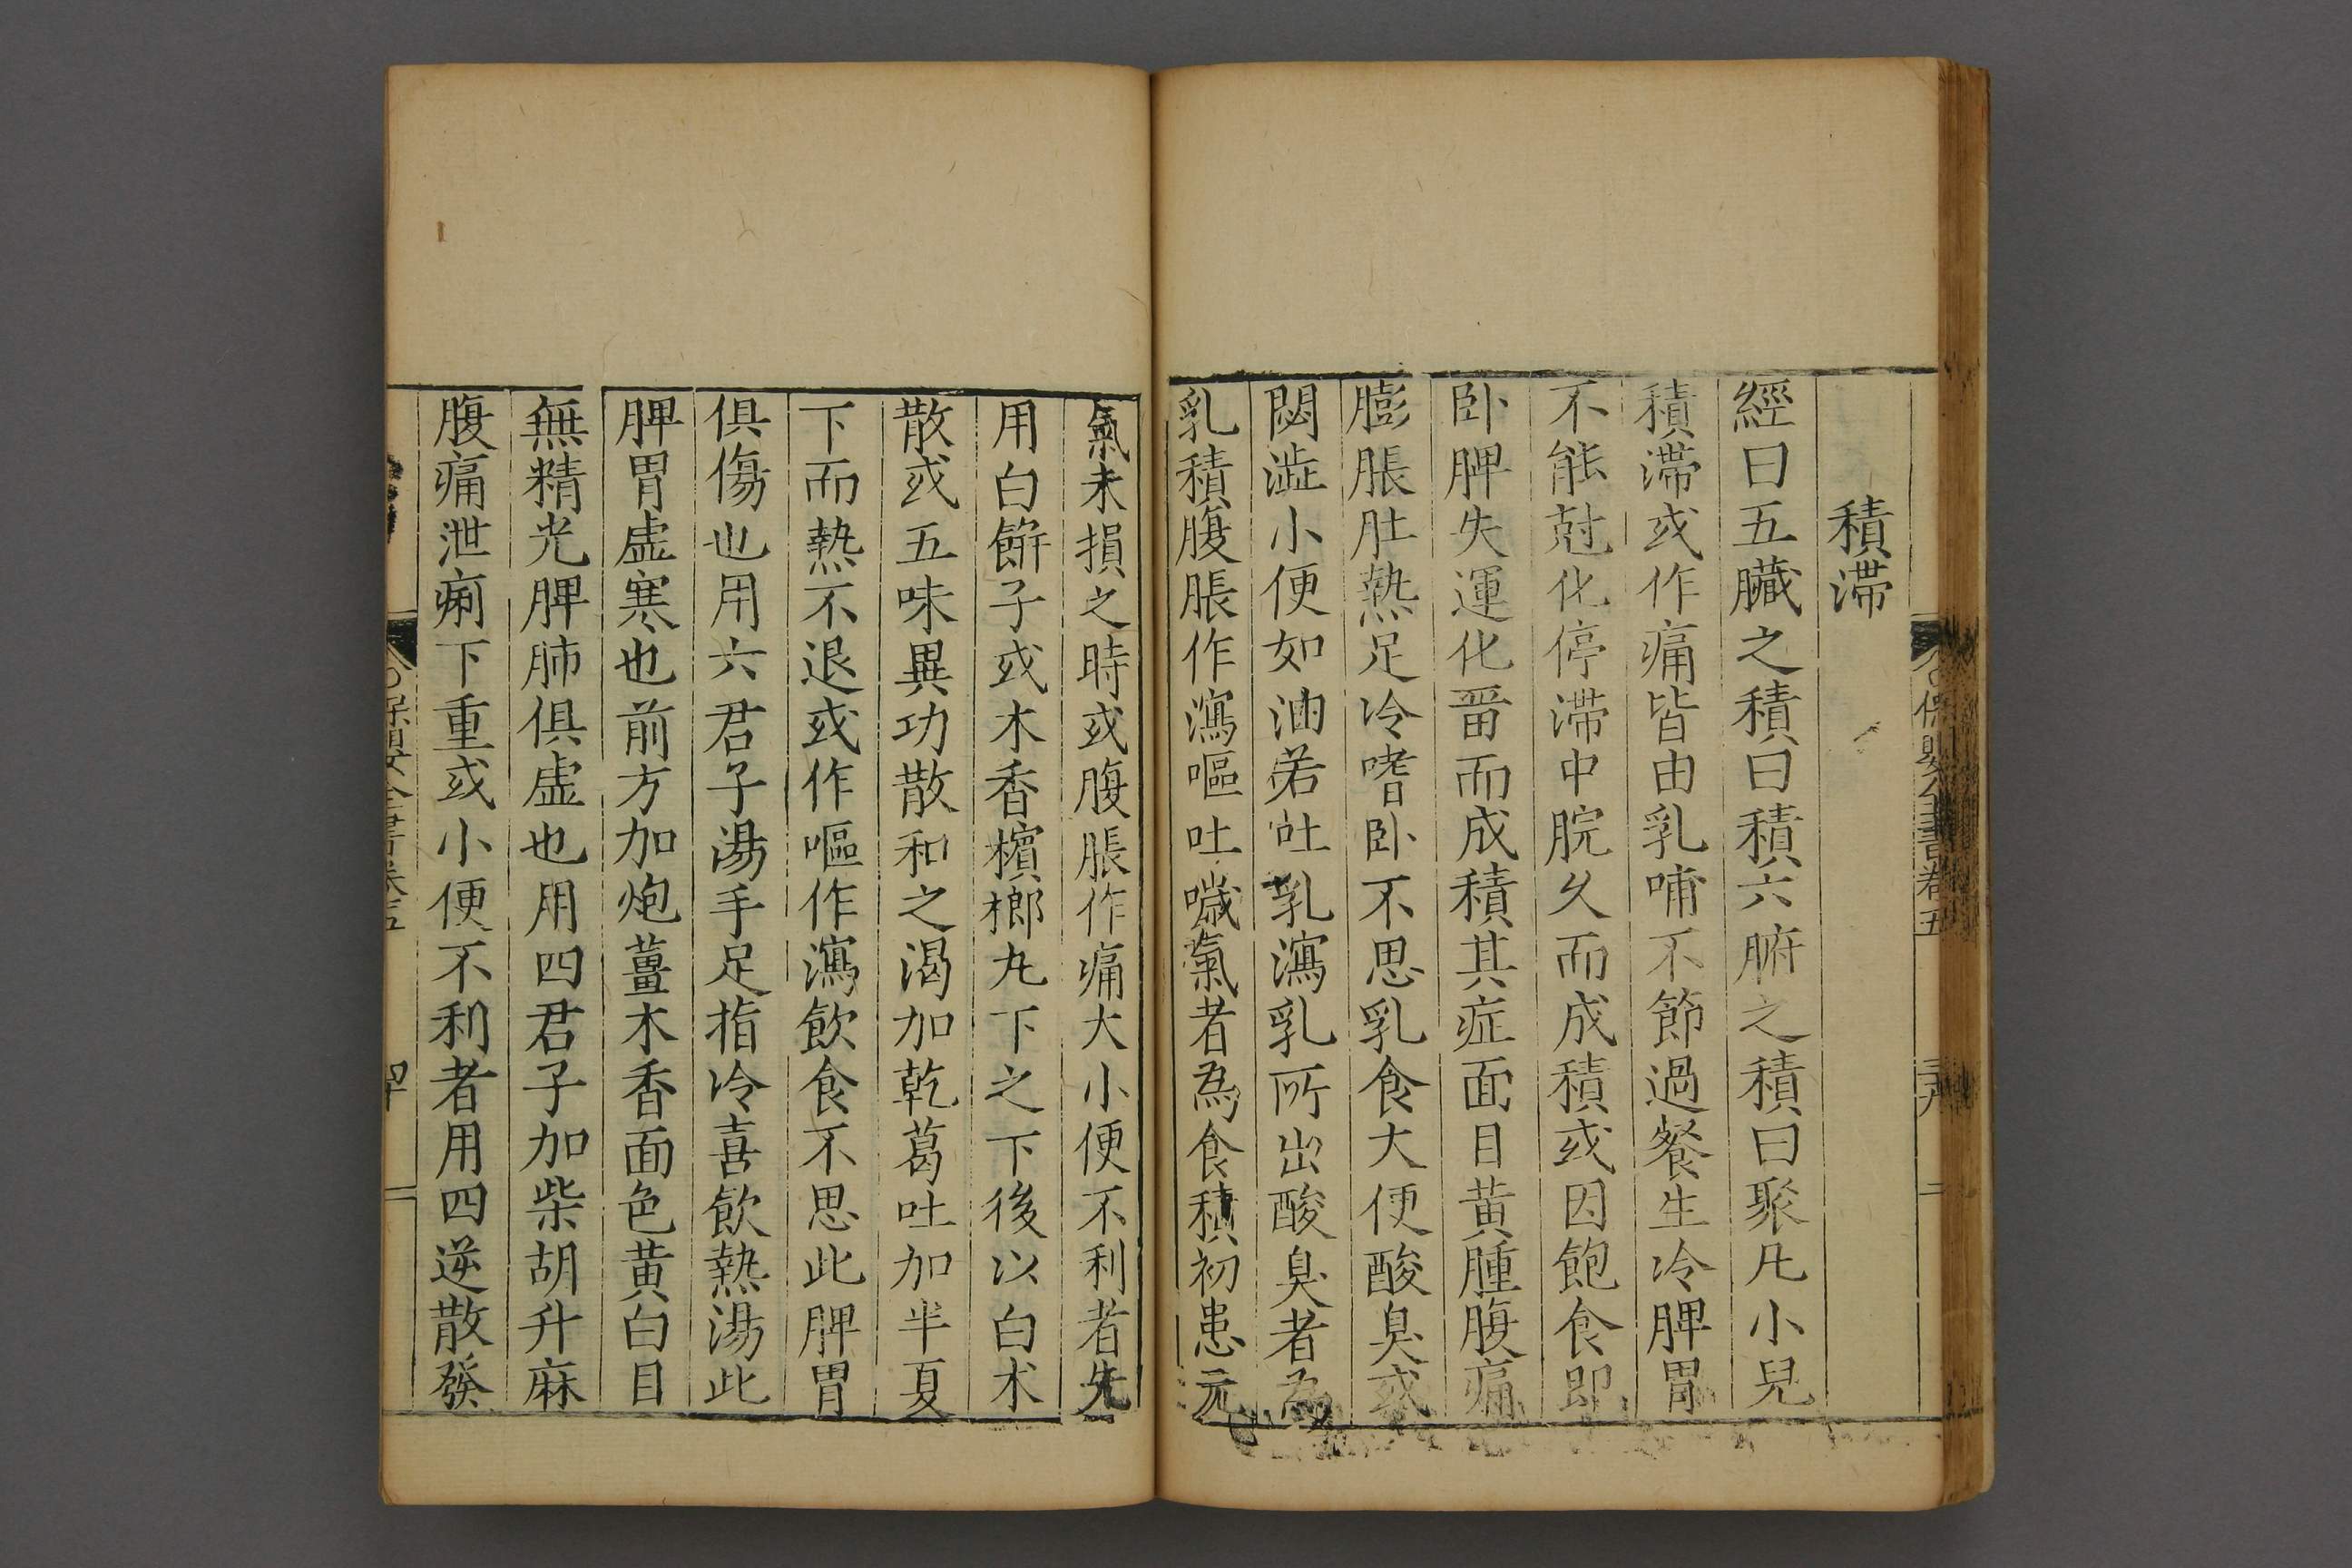 積滯
經曰五臟之積曰積六腑之積曰聚凡小兒
積滯或作痛皆由乳哺不節過餐生冷脾胃
不能尅化停滯中脘久而成積或因飽食即
卧脾失運化畱而成積其症面目黄腫腹痛
膨脹肚熱足冷嗜卧不思乳食大便酸臭或
閟澁小便如油若吐乳瀉乳所出酸臭者為
乳積腹脹作瀉嘔吐噦氣者為食積初患元
氣未損之時或腹脹作痛大小便不利者先
用白餅子或木香檳榔丸下之下後以白术
散或五味異功散和之渴加乾葛吐加半夏
下而熱不退或作嘔作瀉飲食不思此脾胃
俱傷也用六君子湯手足指冷喜飲熱湯此
脾胃虚寒也前方加炮薑木香面色黄白目
無精光脾肺俱虚也用四君子加柴胡升麻
腹痛泄痢下重或小便不利者用四逆散發